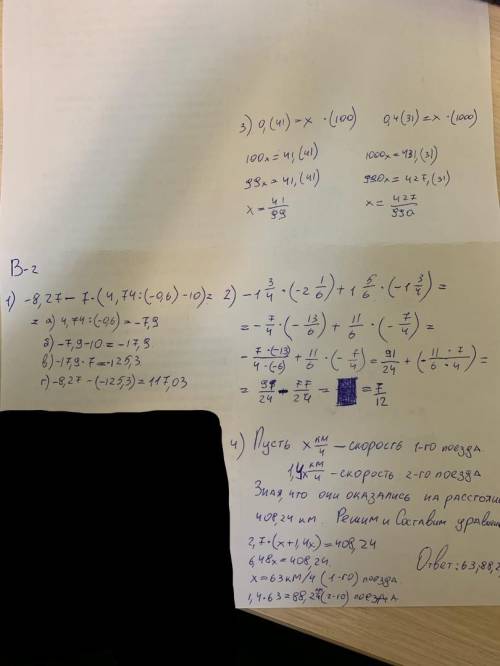 3) 0,(41) = x · (100)
100x = 41,(41)
99x = 41,(41)
x = 41/99
0,4(31) = x · (1000)
1000x = 431,(31)
990x = 427,(31)
x = 427/990
В-2
1) -8,27 - 7 · (4,74 : (-0,6) - 10) =
= а) 4,74 : (-0,6) = -7,9
б) -7,9 - 10 = -17,9
в) -17,9 · 7 = -125,3
г) -8,27 - (-125,3) = 117,03
2) -1 3/4 · (-2 1/6) + 1 5/6 · (-1 3/4) =
= -7/4 · (-13/6) + 11/6 · (-7/4) =
-7·(-13)/4·(-6) + 11/6 · (-7/4) = 91/24 + (-11·7/6·4) =
= 91/24 - 77/24 = = 7/12
4) Пусть x км/ч – скорость 1-го поезда.
1,4x км/ч – скорость 2-го поезда
Зная, что они оказались на расстоян
408,24 км. Решим и Составим уравне
2,7 · (x + 1,4x) = 408,24
6,48x = 408,24.
x = 63 км/ч (1-го) поезда
1,4 · 63 = 88,2 (2-го) поезда
Ответ: 63, 88,2